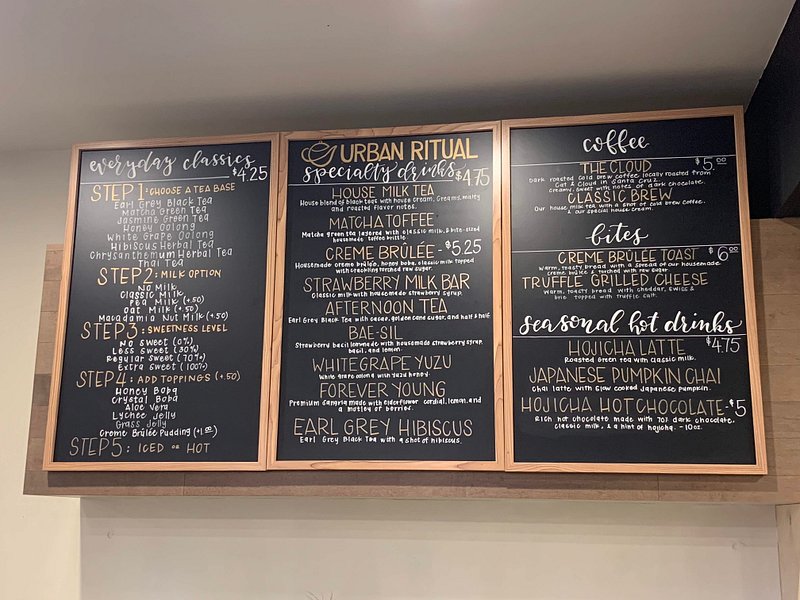 everyday classics
$4.25
STEP 1: CHOOSE A TEA BASE
Earl Grey Black Tea
Matcha Green Tea
Jasmine Green Tea
Honey Oolong
White Grape Oolong
Hibiscus Herbal Tea
Chrysanthemum Herbal Tea
Thai Tea
STEP 2: MILK OPTION
No Milk
Classic Milk
Pea Milk (+.50)
Oat Milk (+.50)
Macadamia Nut Milk (+.50)
STEP 3: SWEETNESS LEVEL
No Sweet (0%)
Less Sweet (30%)
Regular Sweet (70%)
Extra Sweet (100%)
STEP 4: ADD TOPPINGS (+.50)
Honey Boba
Crystal Boba
Aloe Vera
Lychee Jelly
Grass Jelly
Creme Brûlée Pudding (+1.00)
STEP 5: ICED OR HOT
URBAN RITUAL
specialty drinks $4.75
HOUSE MILK TEA
House blend of black teas with house cream. Creamy, malty
and roasted flavor notes.
MATCHA TOFFEE
Matcha green tea layered with classic milk, & bite-sized
housemade toffee brittle.
CREME BRÛLÉE - $5.25
Housemade creme brûlée, honey boba, classic milk topped
with crackling torched raw sugar.
STRAWBERRY MILK BAR
Classic milk with housemade strawberry syrup.
AFTERNOON TEA
Earl Grey Black Tea with cacao, golden cane sugar, and half & half.
BAE-SIL
Strawberry basil lemonade with housemade strawberry syrup,
basil, and lemon.
WHITE GRAPE YUZU
White grape oolong with yuzu honey.
FOREVER YOUNG
Premium sangria made with elderflower cordial, lemon, and
a motley of berries.
EARL GREY HIBISCUS
Earl Grey Black Tea with a shot of hibiscus.
coffee
THE CLOUD $5.00
Dark roasted cold brew coffee locally roasted from
Cat & Cloud in Santa Cruz.
Creamy, sweet with notes of dark chocolate.
CLASSIC BREW
Our house milk tea with a shot of cold brew coffee.
& our special house cream.
bites
CREME BRÛLÉE TOAST $6.00
Warm, toasty bread with a spread of our housemade
creme brûlée & torched with raw sugar.
TRUFFLE GRILLED CHEESE
Warm, toasty bread with cheddar, swiss &
brie topped with truffle salt.
seasonal hot drinks
HOJICHA LATTE $4.75
Roasted Green tea with classic milk.
JAPANESE PUMPKIN CHAI
Chai latte with slow cooked Japanese pumpkin.
HOJICHA HOT CHOCOLATE - $5
Rich hot chocolate made with 70% dark chocolate,
classic milk, & a hint of hojicha. - 10oz.